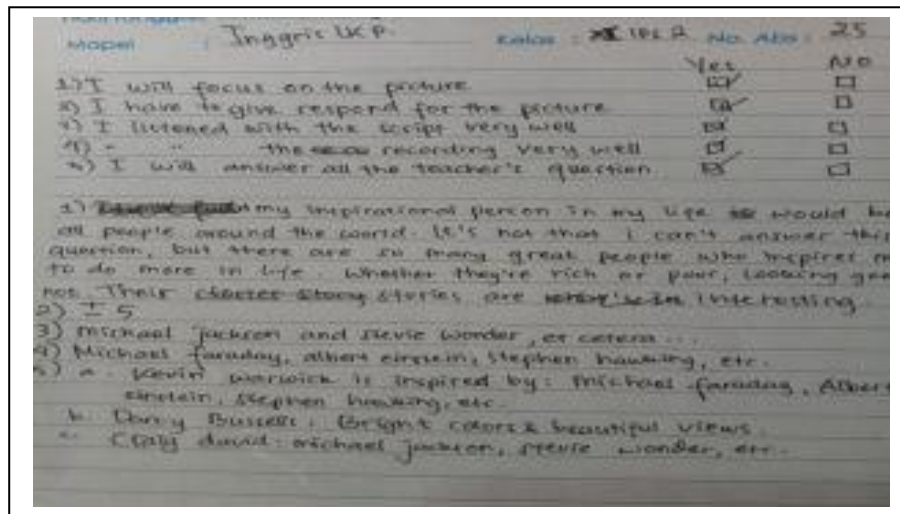 Mapel : Inggris LKP. Kelas : IPS 2 No. Abs : 25
Yes No
1) I will focus on the picture
2) I have to give respond for the picture
3) I listened with the script very well
4) " " the recording very well
5) I will answer all the teacher's question
1) my inspirational person in my life would be
all people around the world. It's not that i can't answer this
question, but there are so many great people who inspires
to do more in life. Whether they're rich or poor, looking
not. Their stories are interesting.
2) ± 5
3) michael jackson and stevie wonder, et cetera ...
4) Michael faraday, albert einstein, stephen hawking, etc.
5) a. Kevin warwick is inspired by: michael faraday, Albert
einstein, stephen hawking, etc.
b. Darcy Bussell: Bright colors & beautiful views.
c. Craig david: michael jackson, stevie wonder, etc.